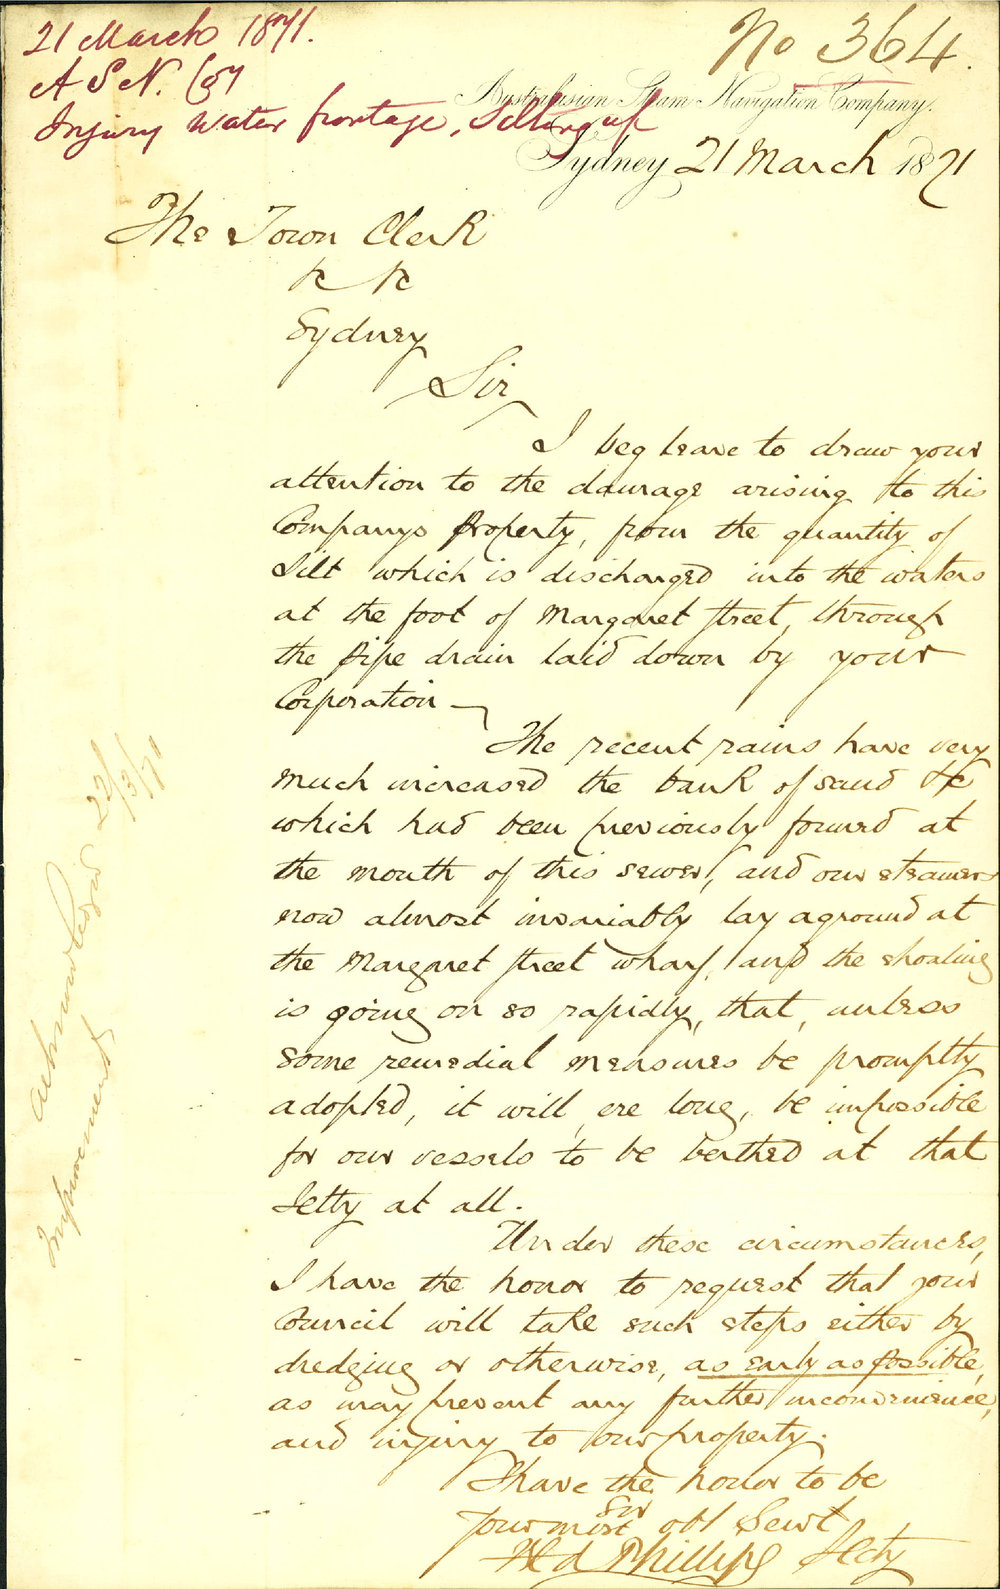 21 March 1871.
A S N. Coy
Injury water frontage, Silting up
No 364.
Australasian Steam Navigation Company.
Sydney 21 March 1871
The Town Clerk
&c &c
Sydney
Sir
I beg leave to draw your
attention to the damage arising to this
Companys property, from the quantity of
Silt which is discharged into the waters
at the foot of Margaret Street, through
the pipe drain laid down by your
Corporation —
The recent rains have very
much increased the bank of sand &c
which had been previously formed at
the mouth of this sewer, and our steamers
now almost invariably lay aground at
the Margaret Street wharf, and the shoaling
is going on so rapidly, that, unless
some remedial measures be promptly
adopted, it will, ere long, be impossible
for our vessels to be berthed at that
Jetty at all.
Under these circumstances,
I have the honor to request that your
Council will take such steps, either by
dredging or otherwise, as early as possible,
as may prevent any further inconvenience,
and injury to our property.
I have the honor to be
Sir
Your most obt Servt
Phillips Secty
Acknowledged 22/3/71
Improvement